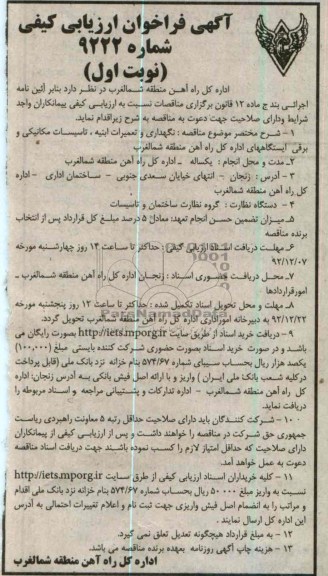 آگهی فراخوان ارزیابی کیفی
شماره ۹۲۲۲
(نوبت اول)
اداره کل راه آهن منطقه شمالغرب در نظر دارد بنابر آئین نامه
اجرائی بند ج ماده ۱۲ قانون برگزاری مناقصات نسبت به ارزیابی کیفی پیمانکاران واجد
شرایط ودارای صلاحیت جهت دعوت به مناقصه به شرح زیراقدام نماید.
۱ – شرح مختصر موضوع مناقصه : نگهداری و تعمیرات ابنیه ، تاسیسات مکانیکی و
برقی ایستگاههای اداره کل راه آهن منطقه شمالغرب
۲- مدت و محل انجام : یکساله – اداره کل راه آهن منطقه شمالغرب
۳ – آدرس : زنجان – انتهای خیابان سعدی جنوبی – ساختمان اداری – اداره
کل راه آهن منطقه شمالغرب
۴ – دستگاه نظارت : گروه نظارت ساختمان و تاسیسات
۵ـ میزان تضمین حسن انجام تعهد: معادل ۵ درصد مبلغ کل قرارداد پس از انتخاب
برنده مناقصه
۶ – مهلت دریافت اسناد ارزیابی کیفی : حداکثر تا ساعت ۱۴ روز چهارشنبه مورخه
۹۲/۱۲/۰۷
۷ – محل دریافت حضوری اسناد : زنجان اداره کل راه آهن منطقه شمالغرب –
امورقراردادها
۸ – مهلت و محل تحویل اسناد تکمیل شده : حداکثر تا ساعت ۱۲ روز پنجشنبه مورخه
۹۲/۱۲/۲۲ به دبیرخانه امورا‌داری اداره کل راه آهن منطقه شمالغرب تحویل گردد.
۹ – دریافت خرید اسناد از طریق سایت http://iets.mporg.ir بصورت رایگان می
باشد و در صورت خرید اسناد بصورت حضوری شرکت کننده بایستی مبلغ (۱۰۰,۰۰۰)
یکصد هزار ریال بحساب سیبای شماره ۵۷۴/۶۷ بنام خزانه نزد بانک ملی (قابل پرداخت
درکلیه شعب بانک ملی ایران ) واریز و با ارائه اصل فیش بانکی بـه آدرس زنجان: اداره
کل راه آهن منطقه شمالغرب – اداره تدارکات و پشتیبانی مراجعه و اسناد مربوطه را
دریافت نماید.
۱۰ – شرکت کنندگان باید دارای صلاحیت حداقل رتبه ۵ معاونت راهبردی ریاست
جمهوری حق شرکت در مناقصه را خواهند داشت و پس از ارزیابی کیفی از پیمانکاران
دارای صلاحیت که حداقل امتیاز لازم را کسب نموده باشند جهت دریافت اسناد مناقصه
دعوت به عمل خواهد آمد.
۱۱ – کلیه خریداران اسناد ارزیابی کیفی از طرق سایت http://iets.mporg.ir
نسبت به واریز مبلغ ۵۰۰۰۰ ریال بحساب شماره ۵۷۴/۶۷ بنام خزانه نزد بانک ملی اقدام
و مراتب را به انضمام اصل فیش واریزی جهت ثبت نام و اعلام تغییرات احتمالی به آدرس
این اداره کل ارسال نمایند .
۱۲ – به مبلغ قرارداد هیچگونه تعدیل تعلق نمی گیرد.
۱۳ – هزینه چاپ آگهی روزنامه بعهده برنده مناقصه می باشد.
اداره کل راه آهن منطقه شمالغرب